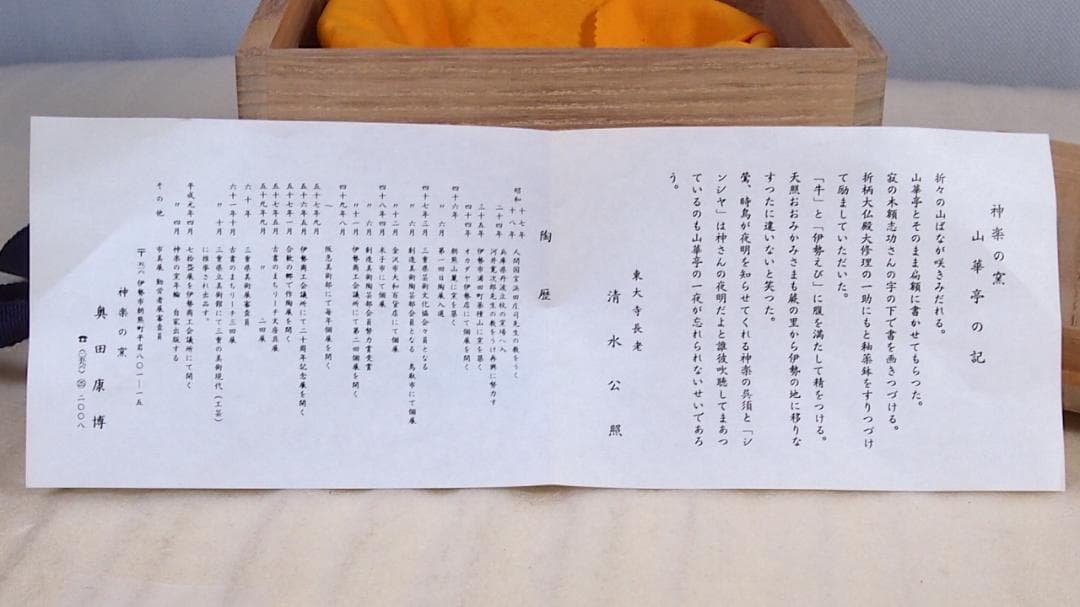 神楽の窯
山華亭の記
折々の山ばなが咲きみだれる。
山華亭とそのまま扁額に書かせてもらつた。
寂の木額志功さんの字の下で書を画きつづける。
折柄大仏殿大修理の一助にもと釉薬鉢をすりつづけ
て励ましていただいた。
「牛」と「伊勢えび」に腹を満たして精をつける。
天照おおみかみさまも巌の里から伊勢の地に移りな
すつたに違いないと笑つた。
鶯、時鳥が夜明を知らせてくれる神楽の呉須と「シ
ンシヤ」は神さんの夜明だよと誰彼吹聴してまあつ
ているのも山華亭の一夜が忘れられないせいであろ
う。
東大寺長老
清水公照
陶歴
昭和十七年 人間国宝浜田庄司先生の教をうく
十八年 兵庫県丹波立杭の窯場へ入
二十四年 河井寛次郎先生の教をうけ再興に努力す
三十五年 伊勢市浦田町茶種山に窯を築く
四十四年 オカダヤ伊勢店にて個展を開く
四十六年 朝熊山麓に窯を築く
〃 六月 第一回日陶展入選
四十二年 三重県芸術文化協会々員となる
〃 六月 創造美術陶芸部会員となる 鳥取市にて個展
〃 十二月 金沢市大和百貨店にて個展
四十八年四月 米子市にて個展
〃 六月 創造美術陶芸部会員努力賞受賞
〃 十一月 伊勢商工会議所にて第二回個展を開く
四十九年八月 阪急美術部にて毎年個展を開く
五十七年九月
五十六年五月 伊勢商工会議所にて二十周年記念展を開く
五十七年一月 合歓の郷で作陶展を開く
五十七年五月 古書のまちリーチ天岳具展
五十九年九月 〃 二四展
六十年 三重県美術展審査員
六十一年十月 古書のまちリーチ三四展
〃 十月 三重県立美術館にて三重の美術現代(工芸)
に推挙され出品す。
平成元年四月 七拾壷展を伊勢商工会議所にて開く
〃 四月 神楽の窯年輪 自家出版する
その他 市美展 勤労者展審査員
〒五一六 伊勢市朝熊町平岩八〇一―一五
神楽の窯
奥田康博
☎(〇五九六)㉕二〇〇八